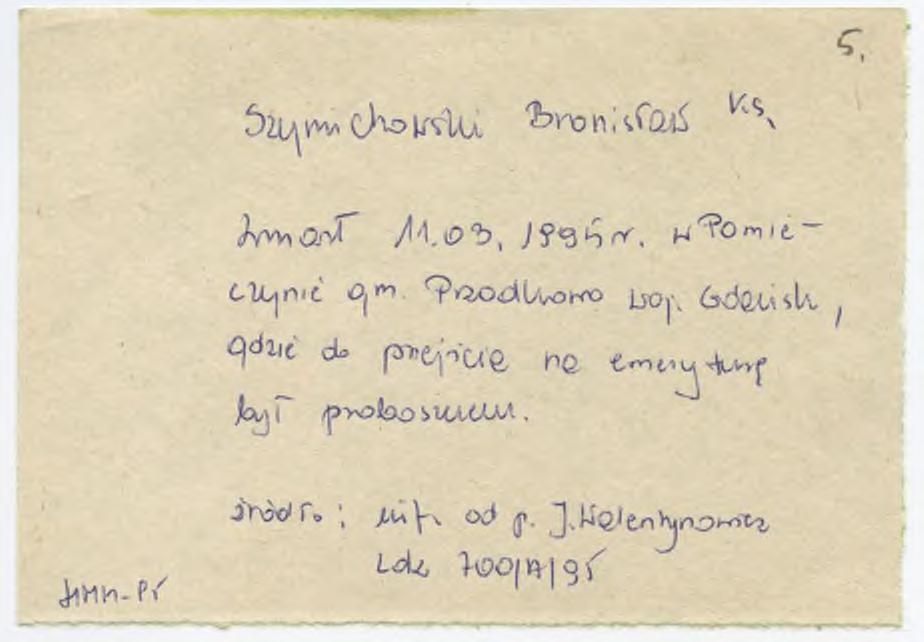 5.
Szymichowski Bronisław ks.
Zmarł 11.03.1995r. w Pomie-
czynie gm. Przodkowo woj. Gdańsk,
gdzie do przejścia na emeryturę
był proboszczem.
źródło: inf. od p. J. Walentynowicz
Ldz 700/A/95